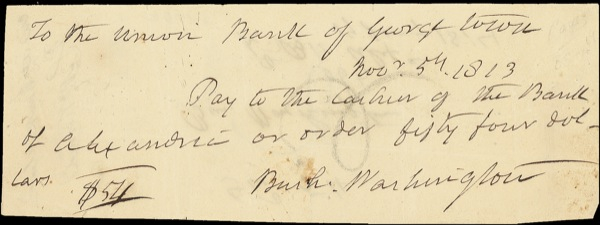 To the Union Bank of George town
Novr. 5th. 1813
Pay to the Cashier of the Bank
of Alexandria or order fifty four dol-
lars. $54
Bush. Washington